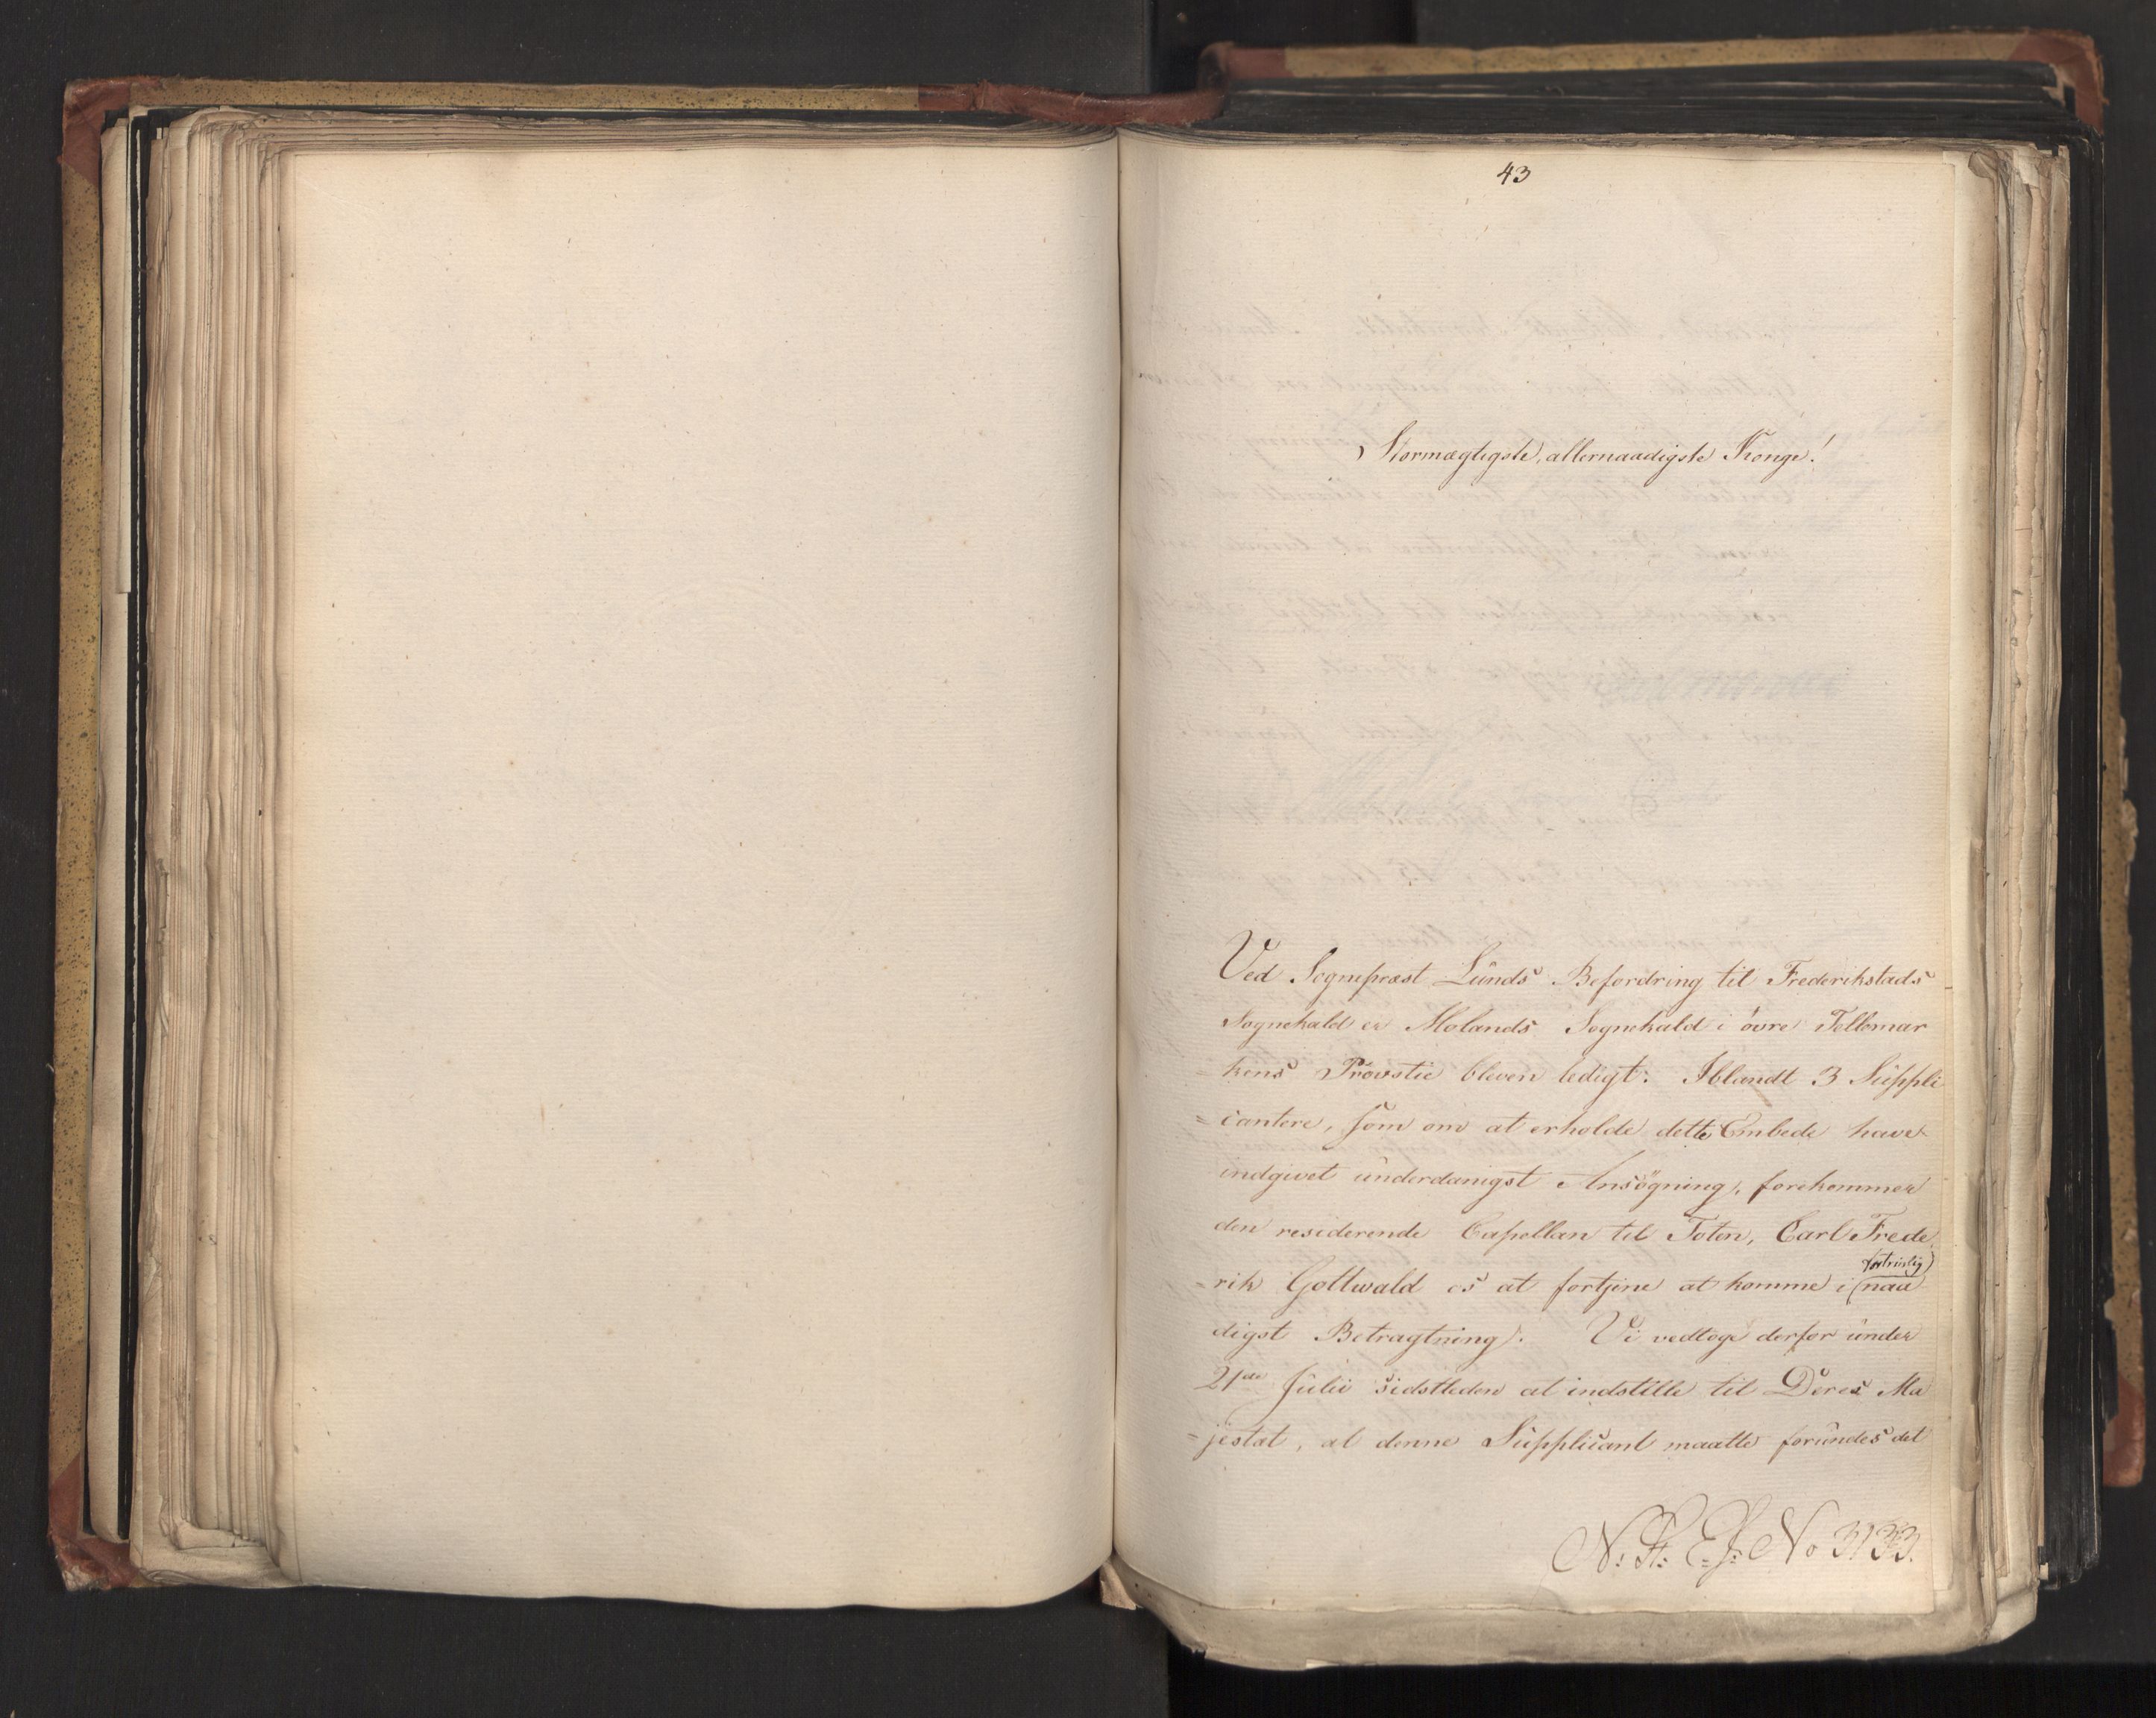 43
Stormægtigste, allernaadigste Konge!
Ved Sognepræst Lunds Befordring til Frederikstads
Sognekald er Molands Sognekald i øvre Tellemar
kens Provstie bleven ledigt. Iblandt 3 Suppli
= cantere, som om at erholde dette Embede have
indgivet underdanigst Ansøgning, forekommer
den residerende Capellan til Toten, Carl Frede
fortrinlig)
= rik Gottwald os at fortjene at komme i (naa
digst Betragtning. Vi vedtoge derfor under
21de Julii sidstleden at indstille til Deres Ma
= jestæt, at denne Supplicant maatte forundes det
No 3133.